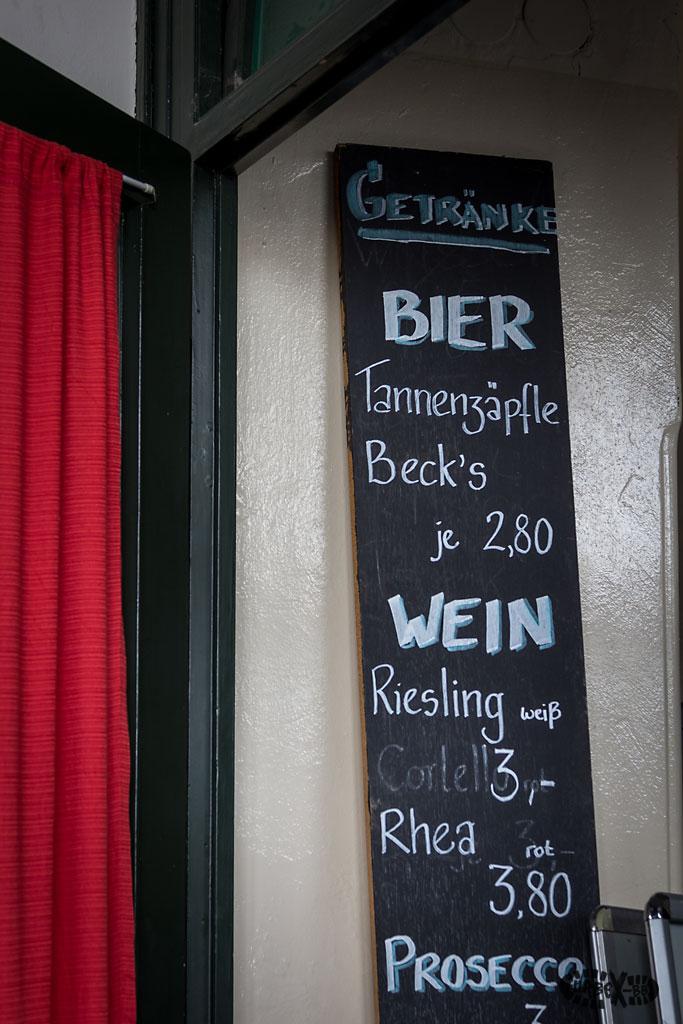 GETRÄNKE
BIER
Tannenzäpfle
Beck's
je 2,80
WEIN
Riesling weiß
3,-
Rhea rot
3,80
PROSECCO
3